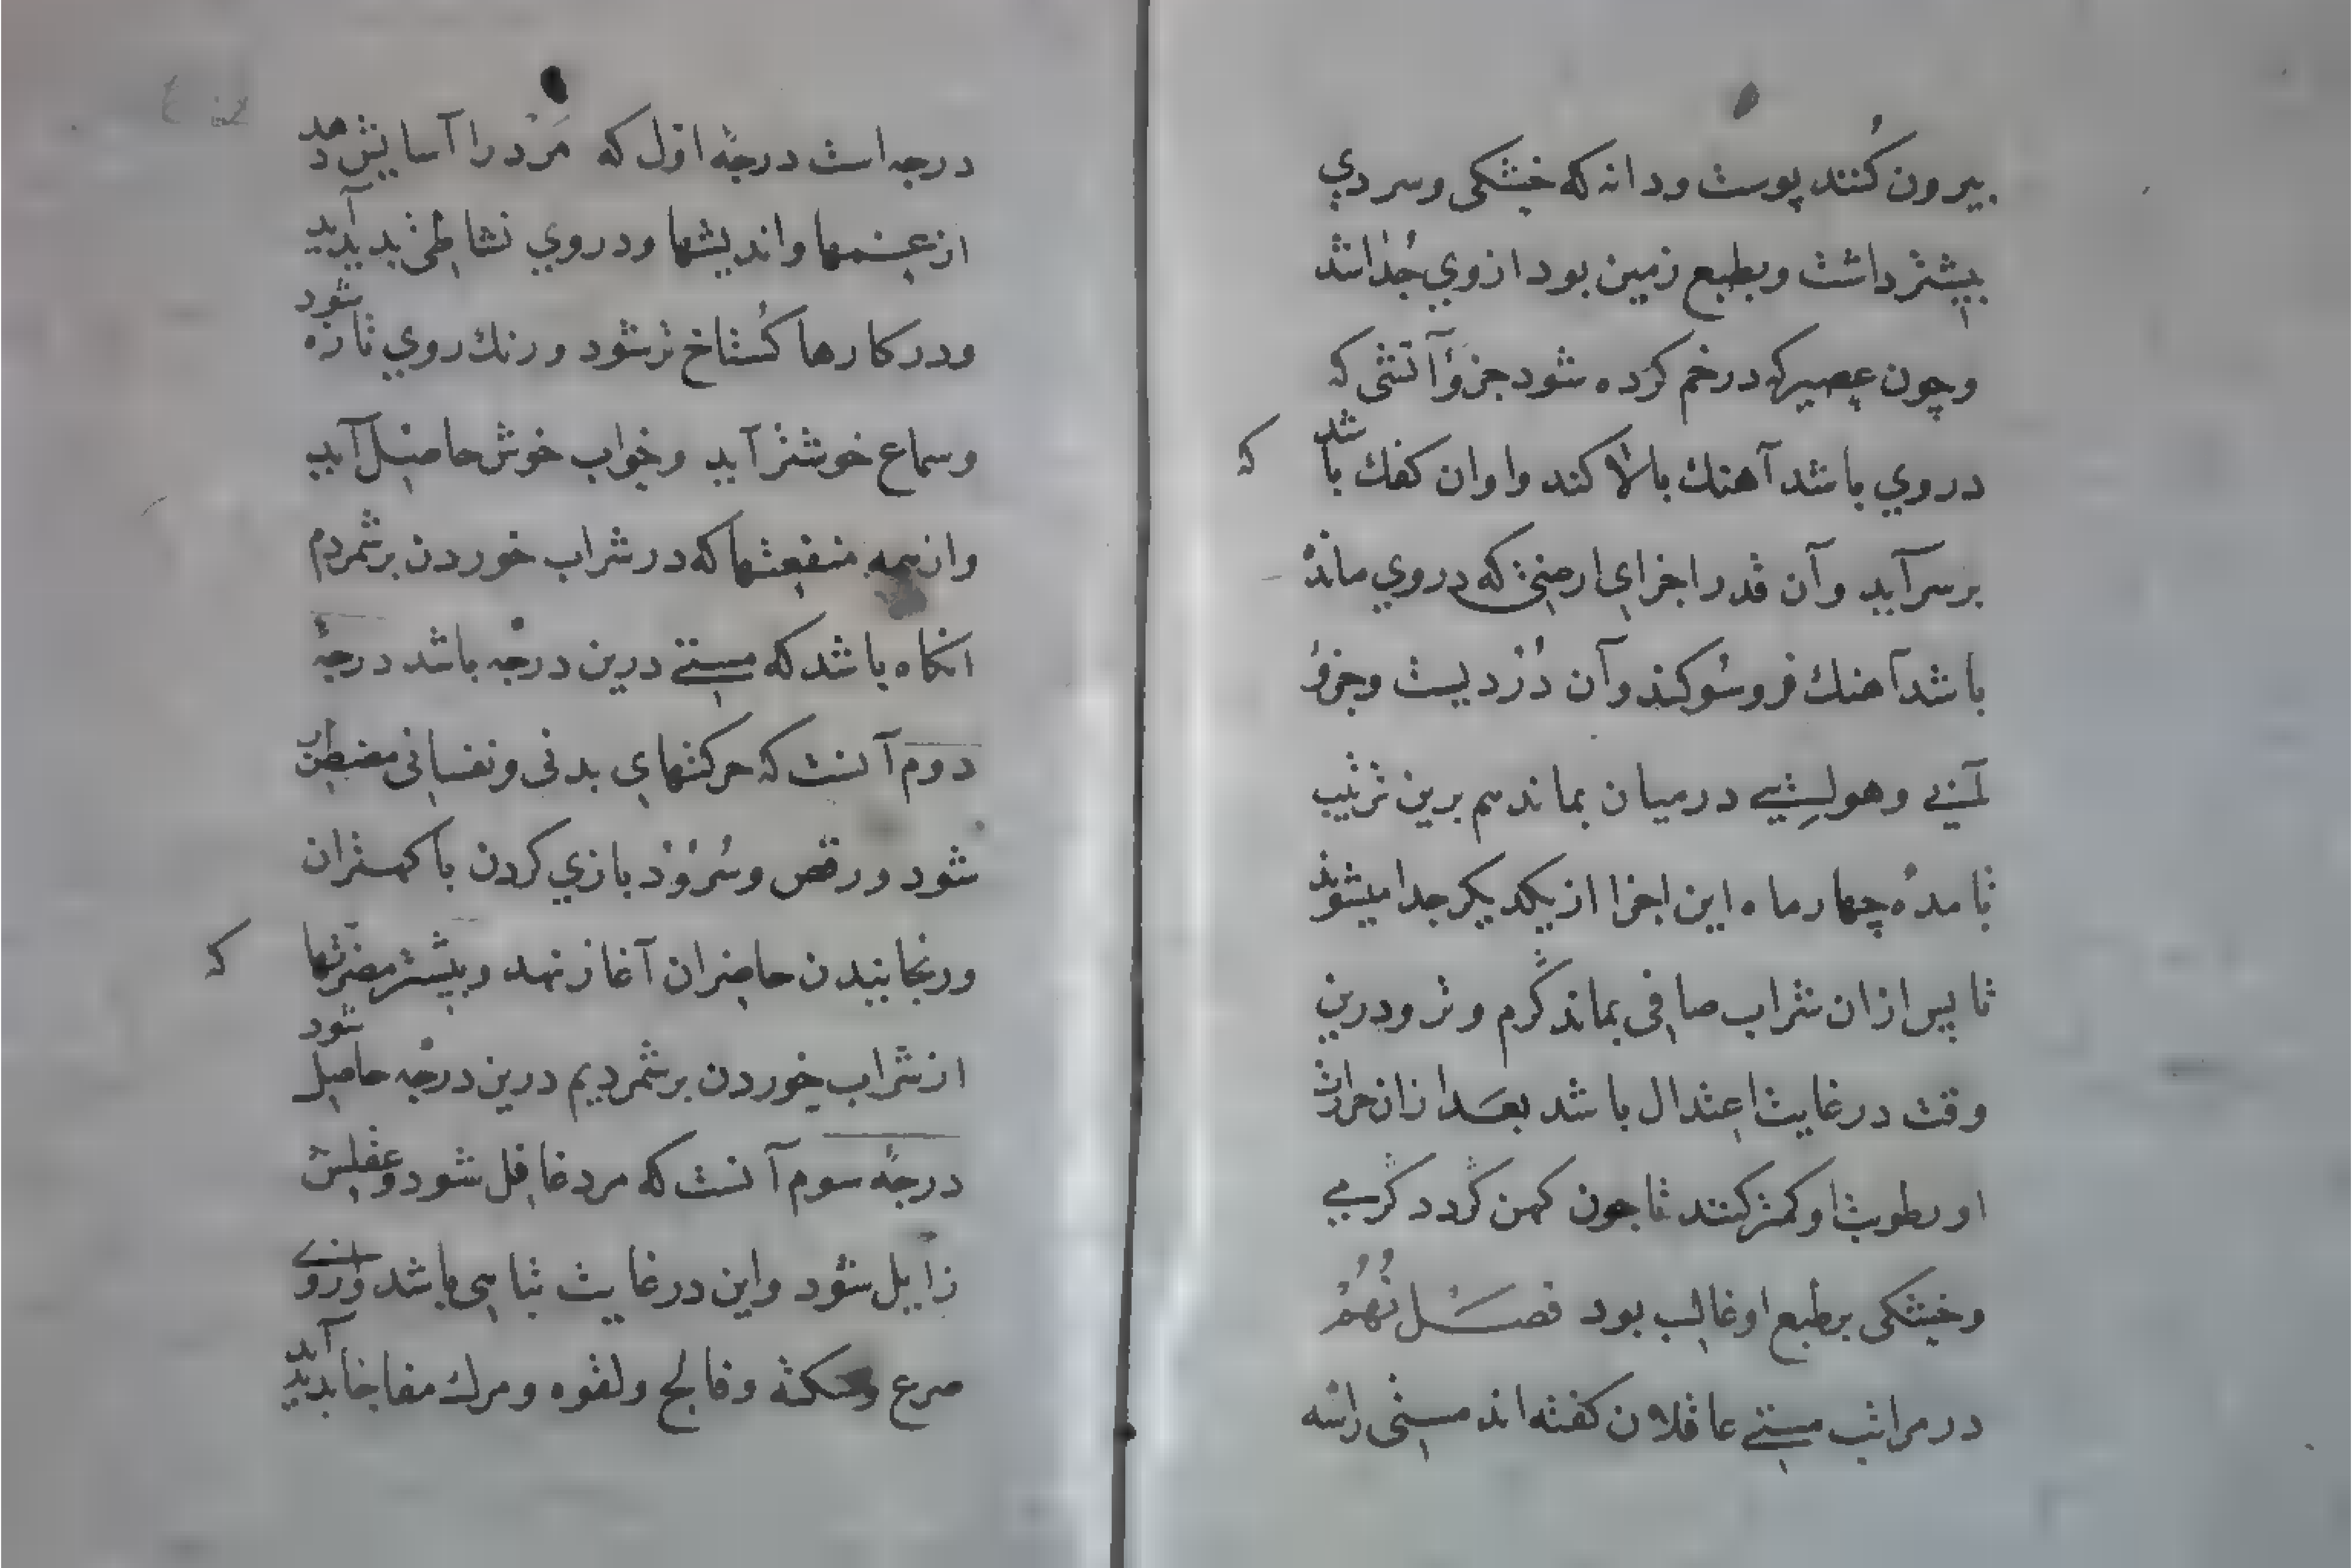 بیرون کُنند پوست ودانه که خشکی وسردي
بیشتر داشت وبطبع زمین بود ازوي جُذا شد
وچون عصیر که درخم کرده شود جزوْ آتشی که
دروي باشد آهنك بالا کند واوان کفك باشد که
برسر آید وآن قدر اجزاي ارضی که دروي مانذْ
باشد آهنك فروسُو کند وآن دُرْدیست وجزوُ
وهوایی درمیان بماند هم برین ترتیب
تا مدهْ چهار ماه این اجزا از یکدیکر جدا میشوند
تا پس ازان شراب صافی بماند کرم وتر ودرین
وقت درغایت اعتدال باشد بعد ازان حرارت
او رطوبت او کمتر کند تا چون کهن کردد کرمی
وخشکی برطبع او غالب بود فصل نُهُمْ
در مراتب مستی عاقلان کفته اند مستی راسه
درجه است درجهٔ اوّل که مَرْد را آسایش دهد
از غمها واندیشها ودروي نشاطی پدید آید
ودر کارها کُستاخ تر شود ورنك روي تازه شود
وسماع خوشتر آید وخواب خوش حاصل آید
وازهمه منفعتها که در شراب خوردن برشمردم
انکاه باشد که مستی درین درجه باشد درجهٔ
دوم آنست که حرکتهاي بدنی ونفسانی مضطرب
شود ورقص وسُرُوْد بازي کردن با کهتران
ورنجانیدن حاضران آغاز نهد وبیشتر مضرّتها که
از شراب خوردن برشمردیم درین درجه حاصل شود
درجهٔ سوم آنست که مرد غافل شود وعقلش
زایل شود واین درغایت تباهی باشد وازوي
صرع وسکته وفالج ولقوه ومرك مفاجا پدید آید